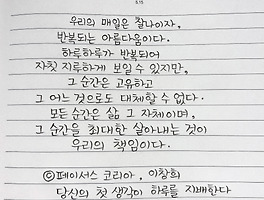 5.15
우리의 매일은 찰나이자,
반복되는 아름다움이다.
하루하루가 반복되어
자칫 지루하게 보일 수 있지만,
그 순간은 고유하고
그 어느 것으로도 대체할 수 없다.
모든 순간은 삶 그 자체이며,
그 순간을 최대한 살아내는 것이
우리의 책임이다.
ⓒ페이서스 코리아, 이창희
당신의 첫 생각이 하루를 지배한다